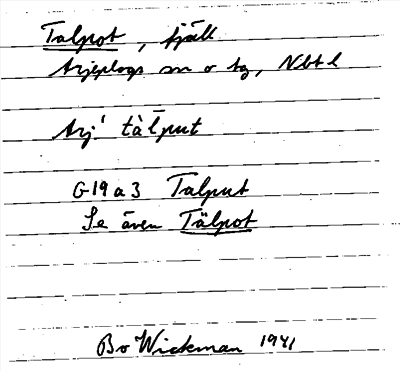 Talpot, fjäll
Arjeplogs sn o tg, Nbtl
Arj! tàl̄put
G19a3 Talput
Se även Tälpot
Bo Wickman 1941